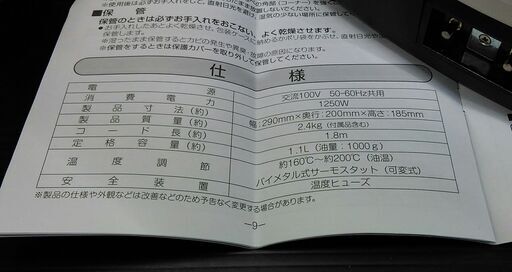 ■保管
保管のときは必ずお手入れをおこない、よく乾燥させます。
●お手入れしたあとよく乾燥させ、包装ケースに納めるかポリ袋をかぶせ、直射日光や
保管します。
※湿ったまま保管するとカビの発生や異臭、故障の原因になります。
※保管をするときは保護カバーを取り外して保管してください。
仕様
電源 交流100V 50-60Hz共用
消費電力 1250W
製品寸法(約) 幅:290mm×奥行:200mm×高さ:185mm
製品質量(約) 2.4kg(付属品含む)
コード長(約) 1.8m
定格容量(約) 1.1L(油量:1000g)
温度調節 約160℃〜約200℃(油温)
バイメタル式サーモスタット(可変式)
安全装置 温度ヒューズ
※製品の仕様や外観などは改善などのため予告なく変更する場合があります。
-9-